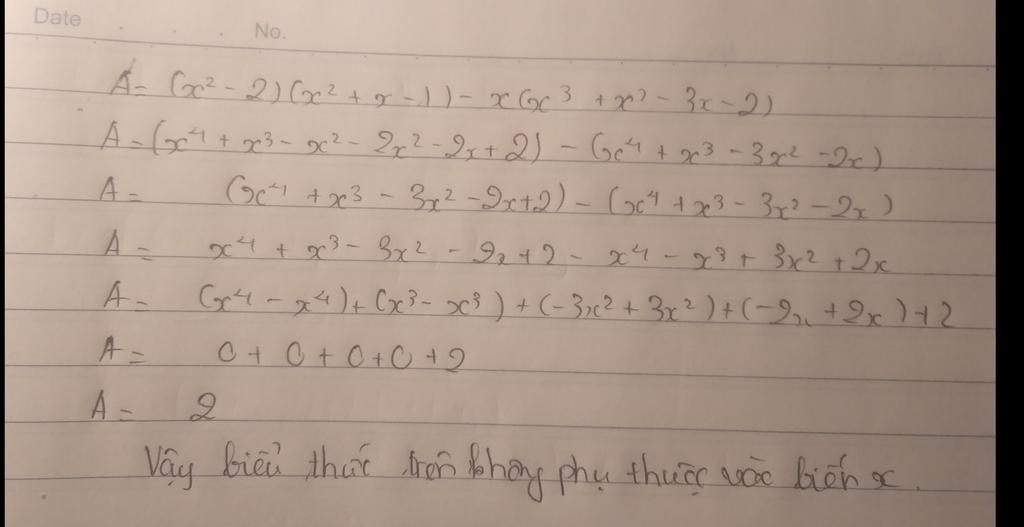 Date . . . No.
A = (x² - 2)(x² + x - 1) - x(x³ + x² - 3x - 2)
A = (x⁴ + x³ - x² - 2x² - 2x + 2) - (x⁴ + x³ - 3x² - 2x)
A = (x⁴ + x³ - 3x² - 2x + 2) - (x⁴ + x³ - 3x² - 2x)
A = x⁴ + x³ - 3x² - 2x + 2 - x⁴ - x³ + 3x² + 2x
A = (x⁴ - x⁴) + (x³ - x³) + (-3x² + 3x²) + (-2x + 2x) + 2
A = 0 + 0 + 0 + 0 + 2
A = 2
Vậy biểu thức trên không phụ thuộc vào biến x.